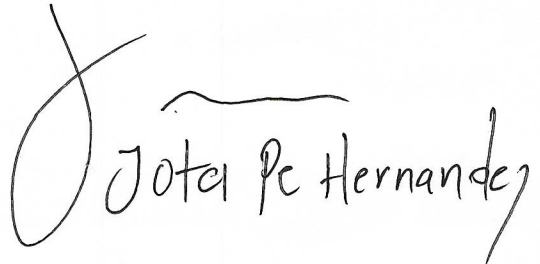 Jota Pe Hernandez